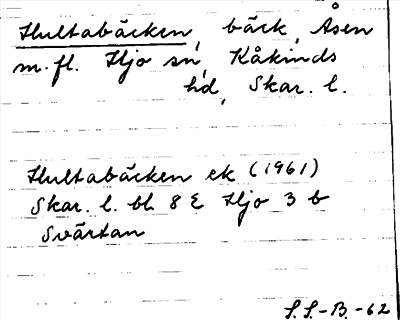 Hultabäcken, bäck, Åsen
m.fl. Hjo sn, Kåkinds
hd, Skar. l.
Hultabäcken ek (1961)
Skar. l. bl. 8 E Hjo 3 b
Svärtan
S.S.-B.-62